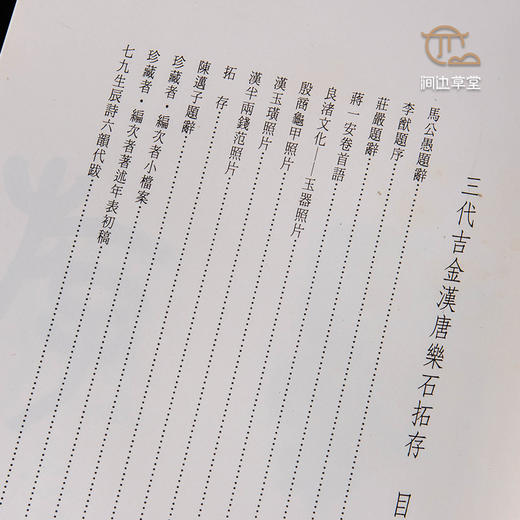 三代吉金漢唐樂石拓存 目
馬公愚題辭
李猷題序
莊嚴題辭
蔣一安卷首語
良渚文化——玉器照片
殷商龜甲照片
漢玉璜照片
漢半兩錢范照片
拓存
陳邁子題辭
珍藏者·編次者小檔案
珍藏者·編次者著述年表初稿
七九生辰詩六韻代跋
涧边草堂